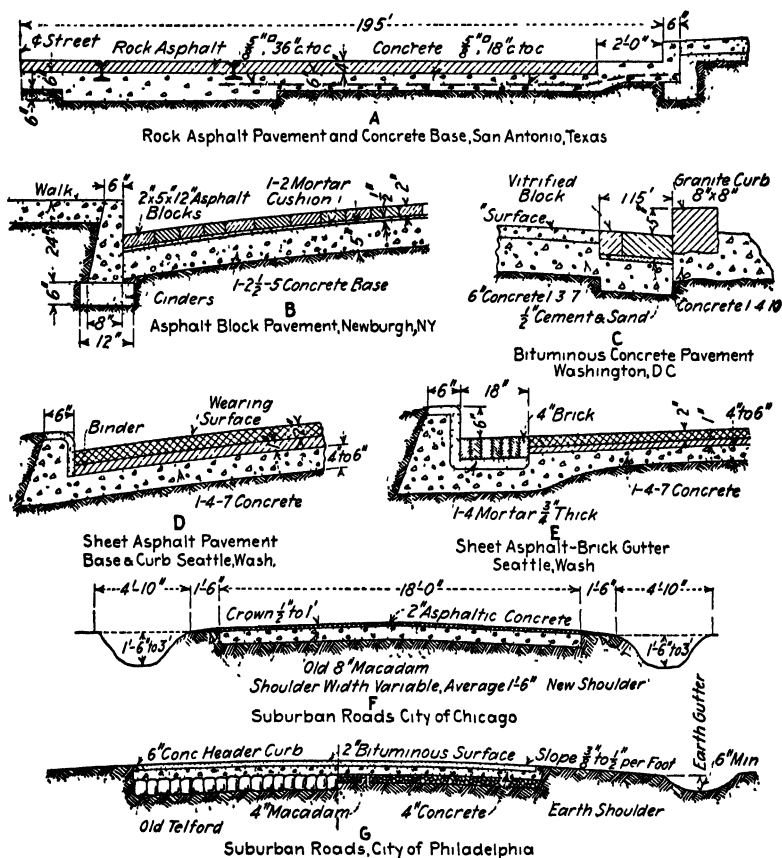 195'
6"
¢ Street
Rock Asphalt
⅝"□, 36"c.toc
Concrete
⅝"□, 18"c.toc
2'-0"
6"
6"
6"
4"
A
Rock Asphalt Pavement and Concrete Base, San Antonio, Texas
6"
Walk
2"x5"x12" Asphalt
Blocks
1-2 Mortar
Cushion
½"
2"
24"
5"
6"
1-2½-5 Concrete Base
Cinders
8"
12"
B
Asphalt Block Pavement, Newburgh, NY
Vitrified
Block
115'
Granite Curb
8"x8"
Surface
6" Concrete 1 3 7
½" Cement & Sand
Concrete 1 4 10
C
Bituminous Concrete Pavement
Washington, D C
6"
Binder
Wearing
Surface
4 to 6"
1-4-7 Concrete
D
Sheet Asphalt Pavement
Base & Curb Seattle, Wash.
6"
18"
6"
4" Brick
2"
1"
4" to 6"
1-4-7 Concrete
1-4 Mortar ¾" Thick
E
Sheet Asphalt-Brick Gutter
Seattle, Wash
4'-10"
1'-6"
18'-0"
1'-6"
4'-10"
Crown ½" to 1'
2" Asphaltic Concrete
1'-6" to 3'
1'-6" to 3'
Old 8" Macadam
Shoulder Width Variable, Average 1'-6"
New Shoulder
F
Suburban Roads City of Chicago
6" Conc Header Curb
2" Bituminous Surface
Slope ⅜" to ½" per Foot
Earth Gutter
6" Min
Old Telford
4" Macadam
4" Concrete
Earth Shoulder
G
Suburban Roads, City of Philadelphia